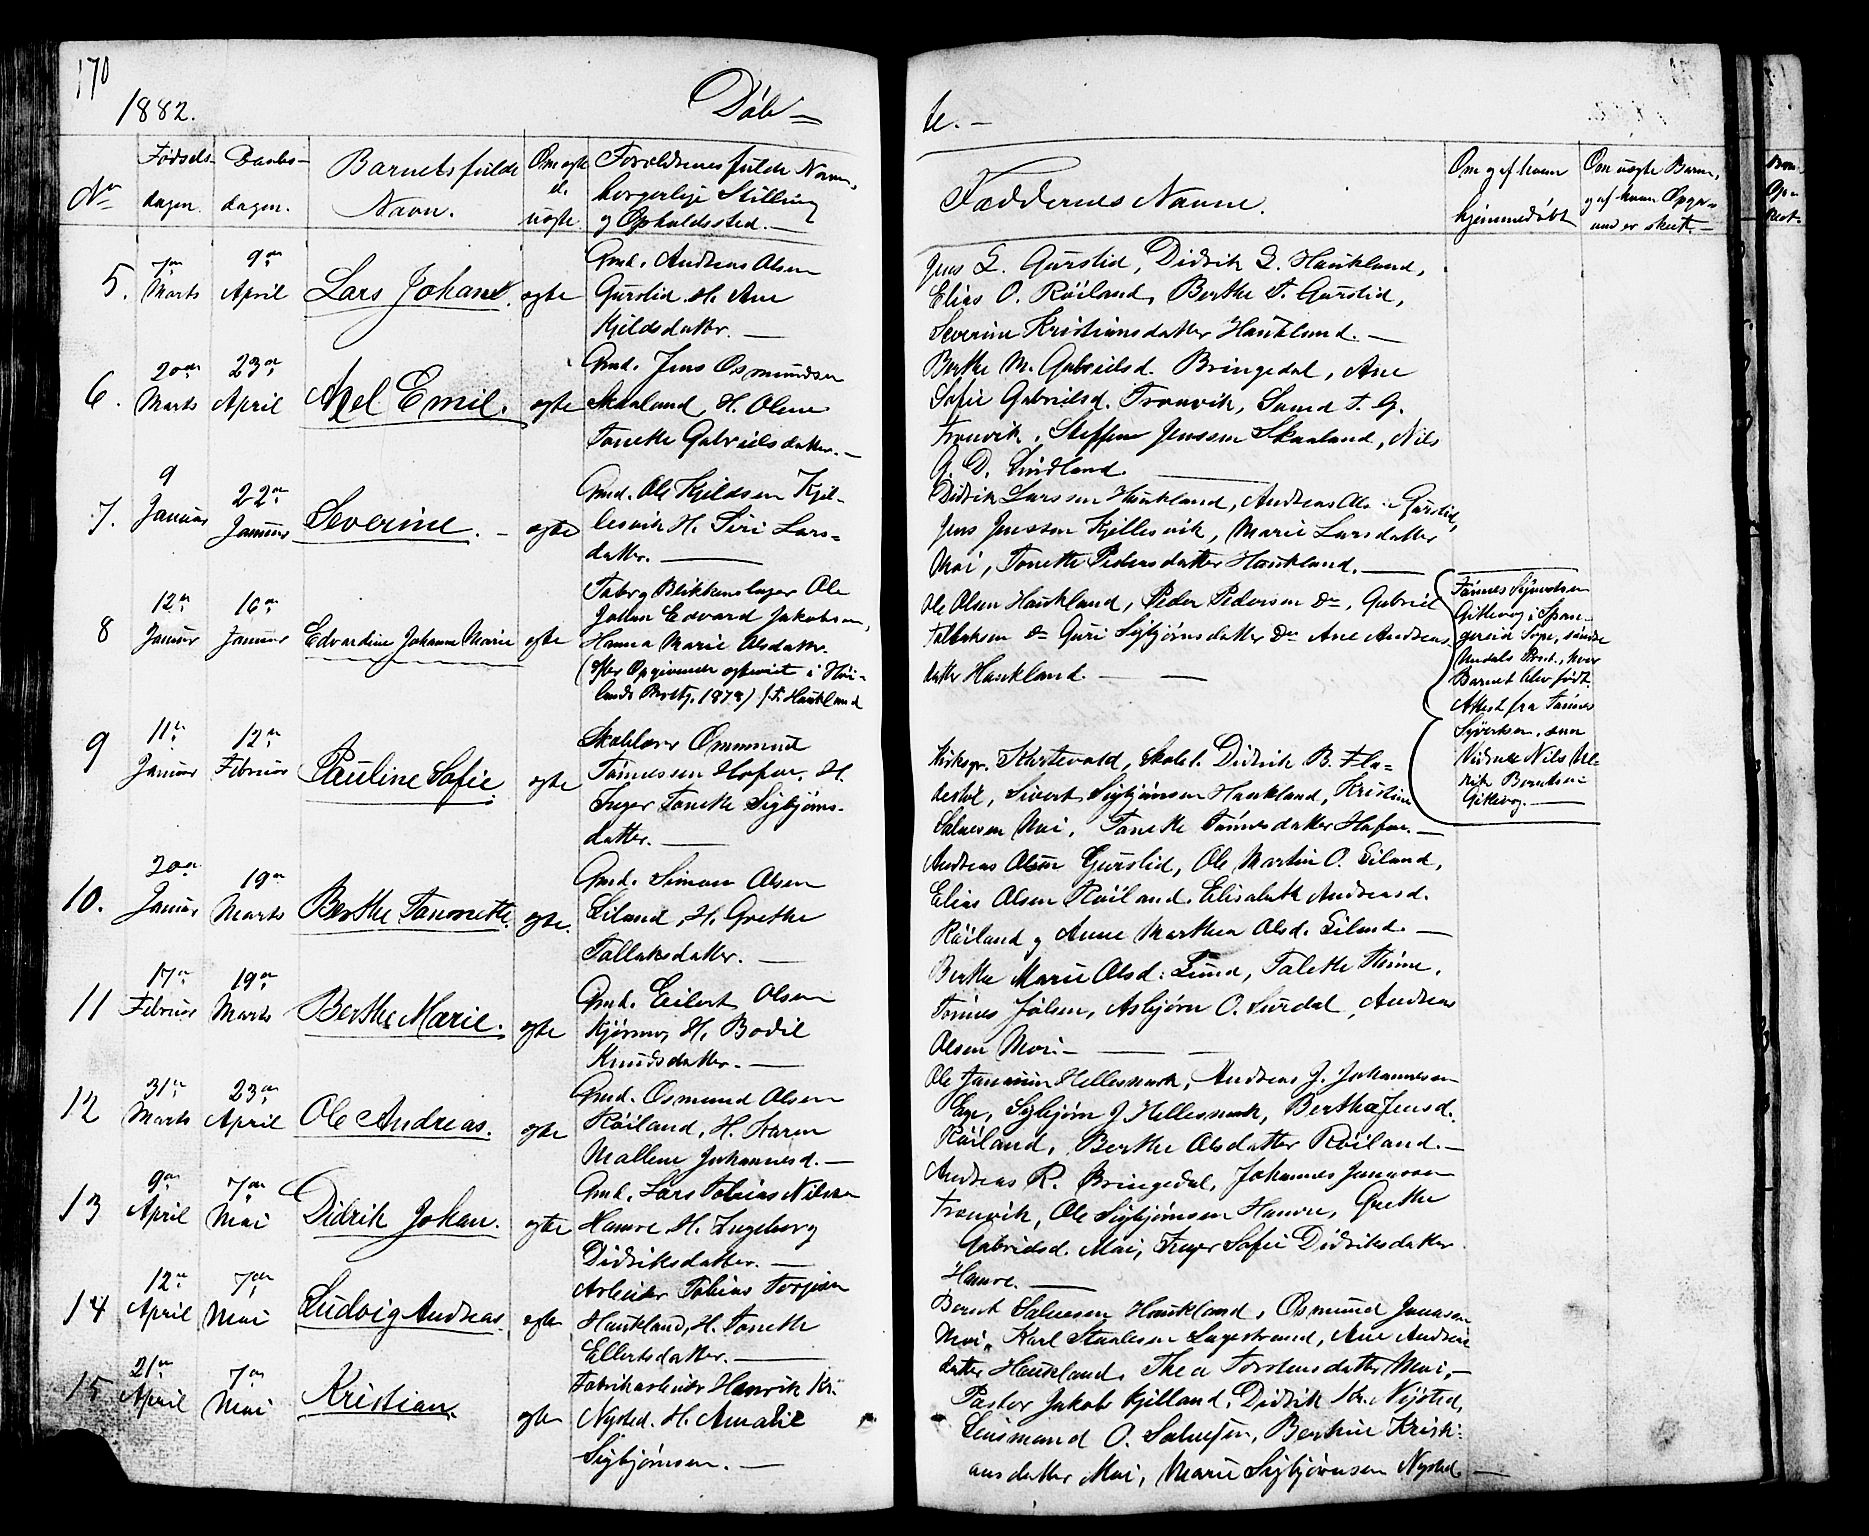 170
1882.
Døb-
te.-
No
Fødsels
dagen.
Daabs-
dagen.
Barnets fulde
Navn.
Om ægte
el.
uægte.
Forældrenes fulde Navn,
borgerlige Stilling
og Opholdssted.-
Faddernes Navne.
Om og af hvem
hjemmedøbt
Om uægte Barn,
og af hvem Opgi-
and er skeet.-
5.
7de
Marts
9de
April
Lars Johan.
ægte
Gmd. Andreas Olsen
Gurslid. H. Ane
Kjeldsdatter.-
Jens L. Gurslid, Didrik L. Haukland,
Elias O. Røiland, Berthe T. Gurslid,
Severine Kristiansdatter Haukland.-
6.
20de
Marts
23de
April
Axel Emil.
ægte
Gmd. Jens Osmundsen
Skaaland, H. Olene
Tonette Gabrielsdatter.-
Berthe M. Gabrielsd. Bringedal, Ane
Sofie Gabrielsd. Tronvik, Samd T. G.
Tronvik, Steffen Jensen Skaaland, Nils
G. D. Lindland.
7.
9
Januar
22de
Januar
Severine.-
ægte
Gmd. Ole Kjeldsen Kjel-
lesvik H. Siri Lars-
datter.-
Didrik Larssen Haukland, Andreas Ols. Gurslid,
Jens Jenssen Kjellesvik, Marie Larsdatter
Moi, Tonette Pedersdatter Haukland.-
8
12te
Januar
16de
Januar
Edvardine Johanne Marie
ægte
Fabr. Blikkenslager Ole
Johan Edvard Jakobsen,
Hanna Marie Olsdatter.
(efter Opgivende ægteviet i Høi-
lands Prstgj. 1878) f. T. Haukland
Ole Olsen Haukland, Peder Pedersen do, Gabriel
Tallaksen do Guri Sigbjørnsdatter do Ane Andreas
datter Haukland.-
Tønnes Syvertsen
Gittevog i Span-
gereid Sogn, søndre
Undals Prst., hvor
Barnet blev født.
Attest fra Tønnes
Syvertsen, samt
Vidnet Nils Ul-
rik Berntsen
Gittevog.-
9
11te
Januar
12te
Februar
Pauline Sofie.
ægte
Skolelærer Ommund
Tønnessen Hofen, H.
Inger Tonette Sigbjørns-
datter.-
Kirkesgr. Kurtevold, Skolel. Didrik B. Fla-
Sivert Sigbjørnsen Haukland, Kristine
Salvesen Moi, Tonette Tønnesdatter Hofen.-
10.
20de
Januar
19de
Marts
Berthe Tomette.
ægte.
Gmd. Simon Olsen
Eiland, H. Grethe
Tallaksdatter.-
Andreas Olsen Gurslid, Ole Martin O. Eiland,
Elias Olsen Røiland, Elisabeth Andreasd.
Røiland og Anne Marthea Olsd. Eiland.-
11
17de
Februar
19de
Marts
Berthe Marie.
ægte
Gmd. Eilert Olsen
H. Bodil
Knudsdatter.-
Berthe Marie Olsd. Lund, Talette
Tønnes Jølsen, Asbjørn O. Surdal, Andreas
Olsen Moi.-
12
31te
Marts
23de
April
Ole Andreas.
ægte
Gmd. Osmund Olsen
Røiland, H. Karen
Mallene Johannesd.-
Ole Hellesmark, Andreas J. Johannesen
Ege, Sigbjørn J. Hellesmark, Berthe Jensd.
Røiland, Berthe Olsdatter Røiland.-
13
9de
April
7de
Mai
Didrik Johan.
ægte
Gmd. Lars Tobias Nilsen
Hamre H. Ingeborg
Didriksdatter.-
Andreas R. Bringedal, Johannes Jonasson
Tronvik, Ole Sigbjørnsen Hamre, Grethe
Gabrielsd. Moi, Inger Sofie Didriksdatter
Hamre.-
14
12te
April
7de
Mai
Ludvig Andreas.
ægte
Arbeider Tobias Torjesen
Haukland, H. Tonette
Ellertsdatter.-
Bernt Salvesen Haukland, Osmund Jonassen
Moi, Karl Staalesen Lagestrand, Ane Andreas
datter Haukland, Thea Torstensdatter Moi,-
15
21de
April
7de
Mai
Kristian.
ægte
Fabrikarbeider Henrik Kr.
Nysted. H. Amalie
Sigbjørnsen.-
Pastor Jakob Kjelland, Didrik Kr. Nysted,
Lensmand O. Salvesen, Berthine Kristi-
ansdatter Moi, Marie Sigbjørnsen Nysted.-